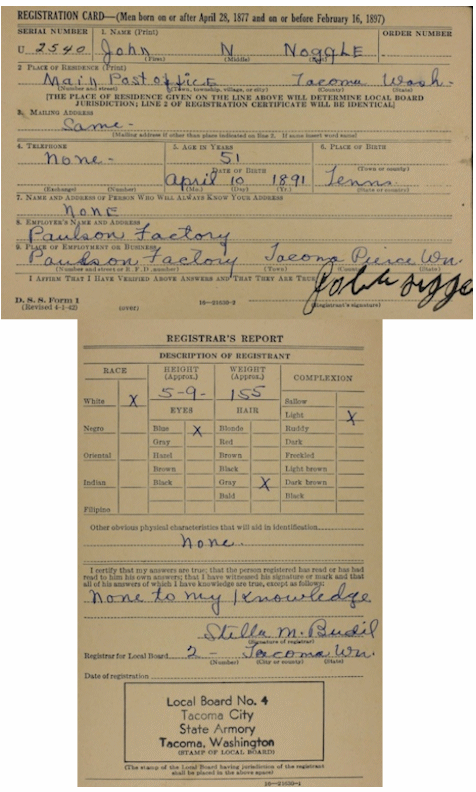 REGISTRATION CARD—(Men born on or after April 28, 1877 and on or before February 16, 1897)
SERIAL NUMBER 1. NAME (Print) ORDER NUMBER
U 2540 John N NOGGLE
(First) (Middle)
2 PLACE OF RESIDENCE (Print)
Main Post office Tacoma Wash-
(Number and street) (Town, township, village, or city) (County) (State)
[THE PLACE OF RESIDENCE GIVEN ON THE LINE ABOVE WILL DETERMINE LOCAL BOARD
JURISDICTION; LINE 2 OF REGISTRATION CERTIFICATE WILL BE IDENTICAL]
3. MAILING ADDRESS
Same-
[Mailing address if other than place indicated on line 2. If same insert word same]
4. TELEPHONE 5. AGE IN YEARS 6. PLACE OF BIRTH
None- 51
DATE OF BIRTH (Town or county)
April 10 1891 Tenn.
(Exchange) (Number) (Mo.) (Day) (Yr.) (State or country)
7. NAME AND ADDRESS OF PERSON WHO WILL ALWAYS KNOW YOUR ADDRESS
None
8. EMPLOYER'S NAME AND ADDRESS
Paulson Factory
9. PLACE OF EMPLOYMENT OR BUSINESS
Paulson Factory Tacoma Pierce Wn.
(Number and street or R. F. D. number) (Town) (County) (State)
I AFFIRM THAT I HAVE VERIFIED ABOVE ANSWERS AND THAT THEY ARE TRUE.
D. S. S. Form 1
(Revised 4-1-42) (over) (Registrant's signature)
REGISTRAR'S REPORT
DESCRIPTION OF REGISTRANT
RACE HEIGHT (Approx.) WEIGHT (Approx.) COMPLEXION
5-9- 155
White X Sallow
EYES HAIR Light X
Negro Blue X Blonde Ruddy
Gray Red Dark
Oriental Hazel Brown Freckled
Brown Black Light brown
Indian Black Gray X Dark brown
Bald Black
Filipino
Other obvious physical characteristics that will aid in identification
None.
I certify that my answers are true; that the person registered has read or has had
read to him his own answers; that I have witnessed his signature or mark and that
all of his answers of which I have knowledge are true, except as follows:
None to my knowledge
Stella M. Budil
(Signature of registrar)
Registrar for Local Board 2- Tacoma Wn.
(Number) (City or county) (State)
Date of registration
Local Board No. 4
Tacoma City
State Armory
Tacoma, Washington
(STAMP OF LOCAL BOARD)
(The stamp of the Local Board having jurisdiction of the registrant
shall be placed in the above space)